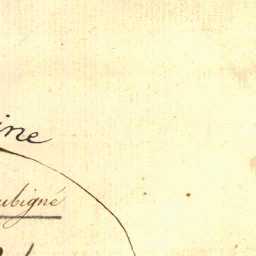 ine
ubigné